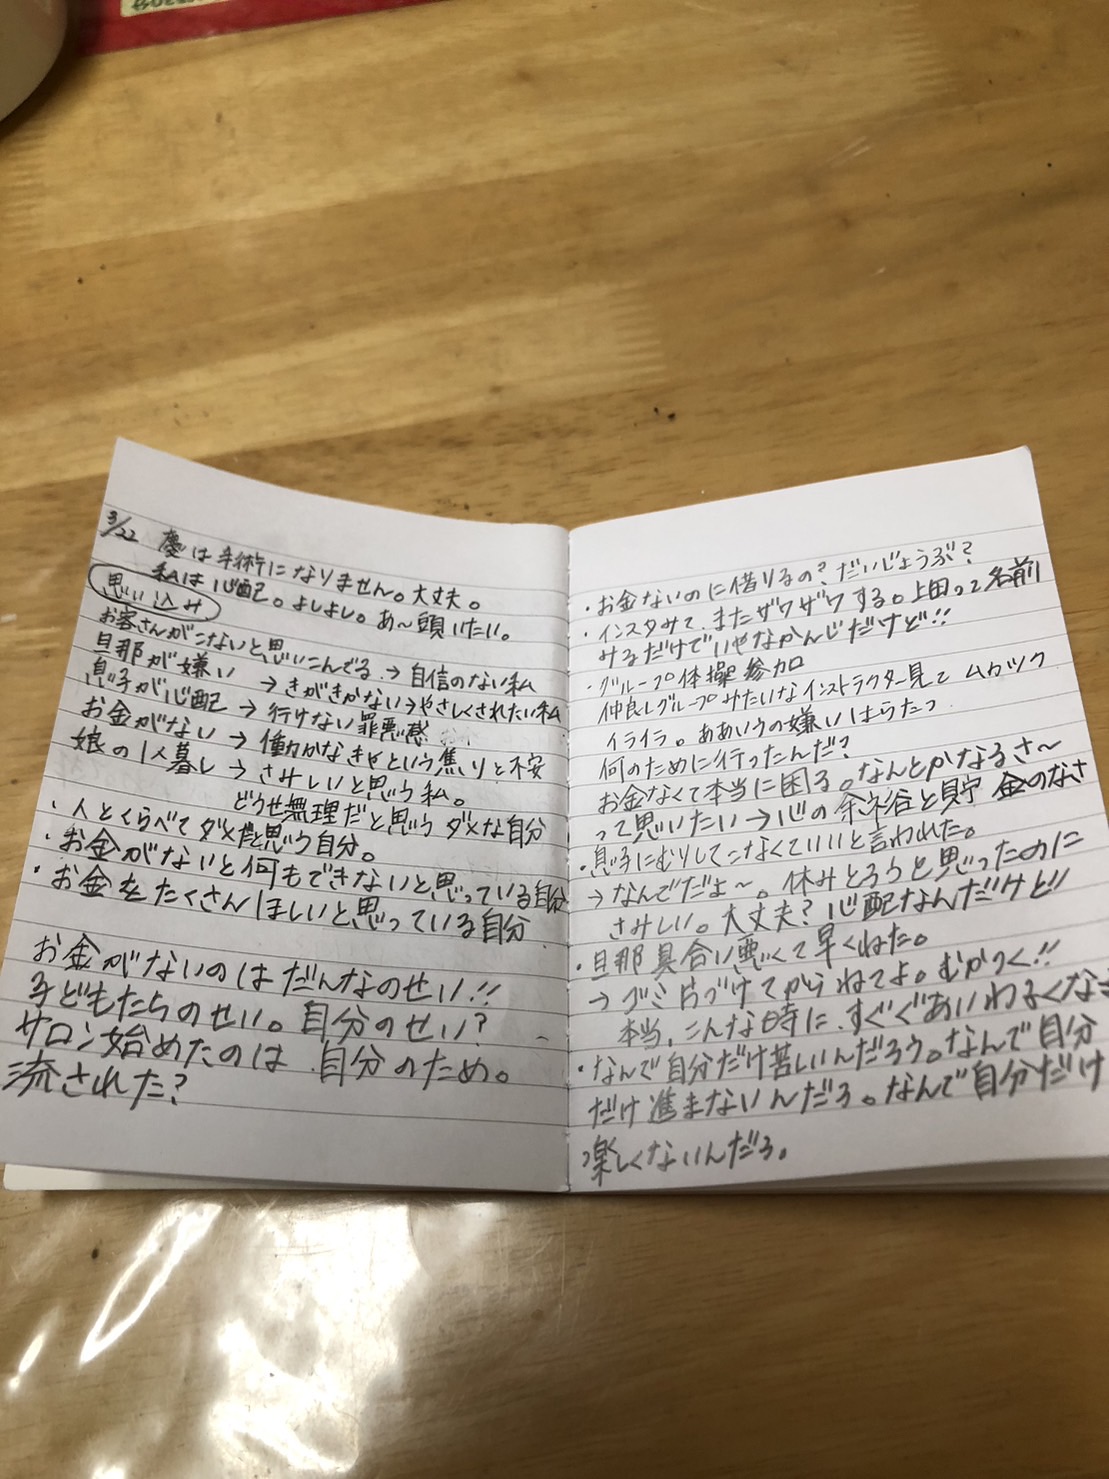 3/22 慶は手術になりません。大丈夫。
私は心配。よしよし。あ〜頭いたい。
思い込み
お客さんがこないと思いこんでる → 自信のない私
旦那が嫌い → きがきかない→やさしくされたい私
息子が心配 → 行けない罪悪感
お金がない → 働かなきゃという焦りと不安
娘の1人暮し → さみしいと思う私。
どうせ無理だと思うダメな自分
・人とくらべてダメだと思う自分。
・お金がないと何もできないと思っている自分
・お金をたくさんほしいと思っている自分
お金がないのはだんなのせい!!
子どもたちのせい。自分のせい?
サロン始めたのは自分のため。
流された?
・お金ないのに借りるの?だいじょうぶ?
・インスタみて、またザワザワする。上田って名前
みるだけでいやなかんじだけど!!
・グループ体操参加
仲良しグループみたいなインストラクター見てムカツク
イライラ。ああいうの嫌い はらたつ
何のために行ったんだ?
お金なくて本当に困る。なんとかなるさ〜
って思いたい→心の余裕と貯金のなさ
・息子にむりしてこなくていいと言われた。
→ なんでだよ〜。休みとろうと思ったのに
さみしい。大丈夫?心配なんだけど!!
・旦那具合い悪くて早くねた。
→ ゴミ片づけてからねてよ。むかつく!!
本当、こんな時に、すぐぐあいわるくなる
・なんで自分だけ苦しいんだろう。なんで自分
だけ進まないんだろ。なんで自分だけ
楽しくないんだろ。